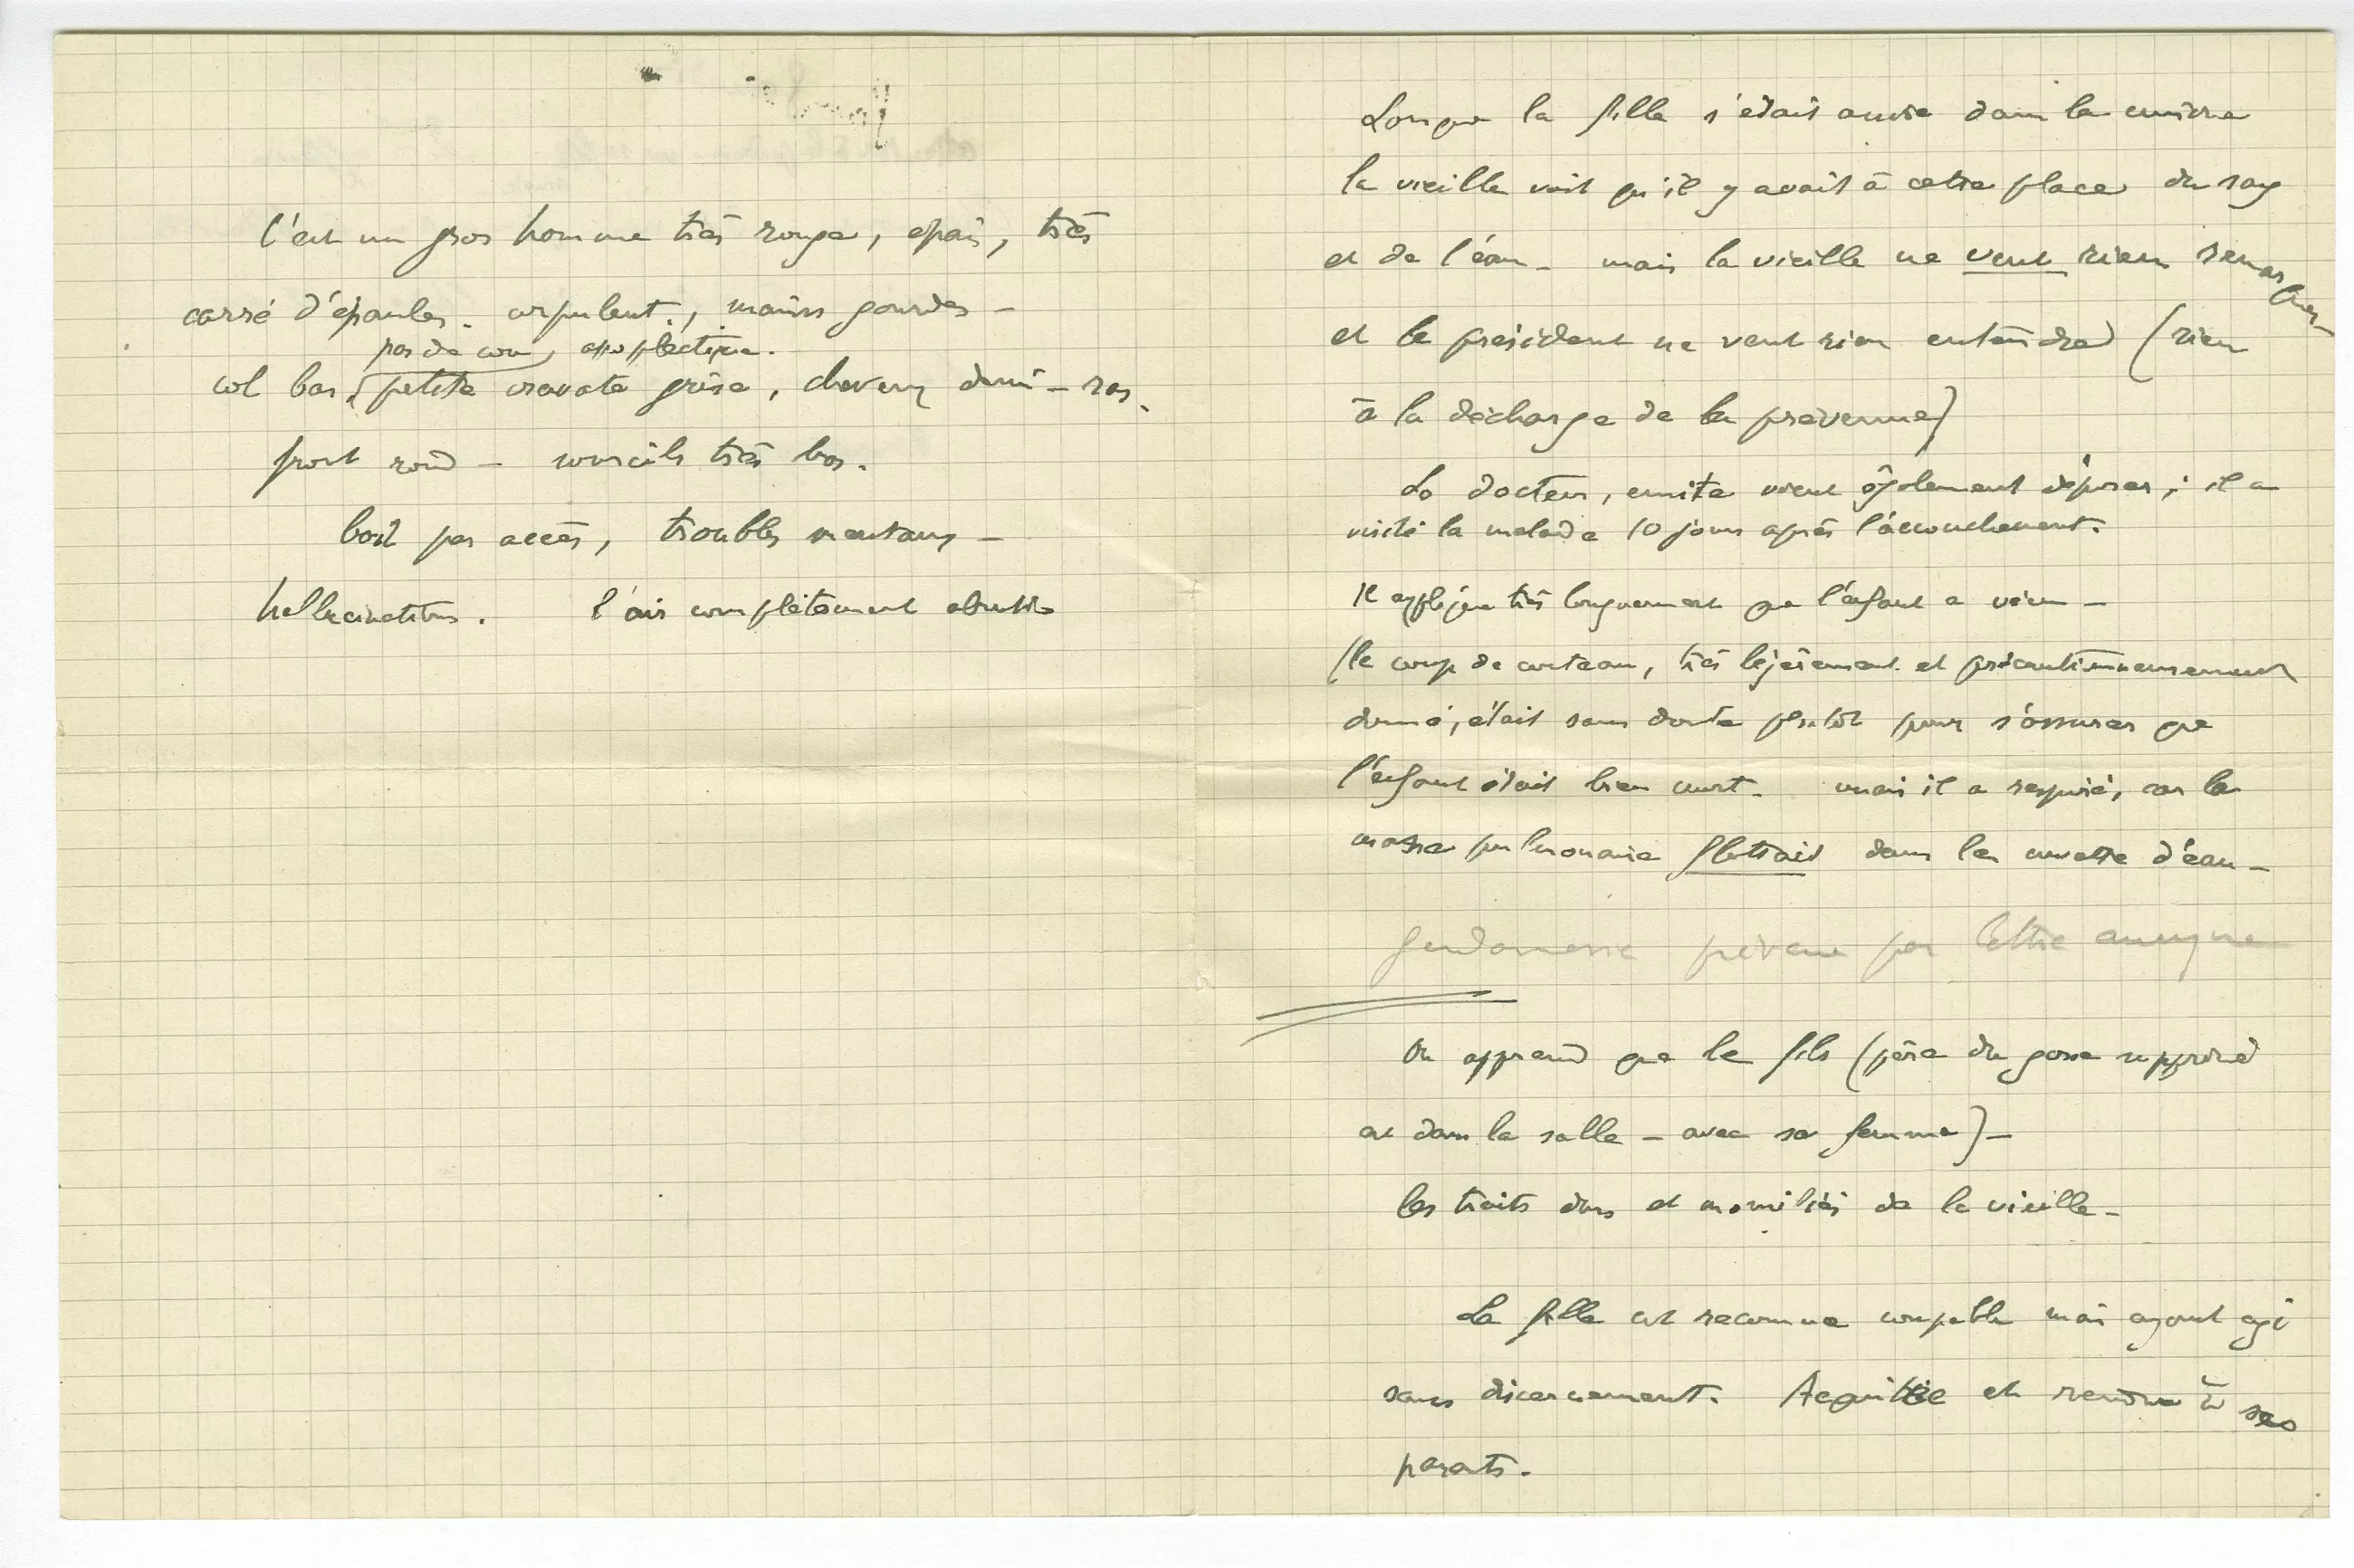 C'est un gros homme très rouge, épais, très
carré d'épaules. corpulent., mains gourdes –
pas de cou, apoplectique.
col bas, petite cravate grise, cheveux demi-ras.
front rond – sourcils très bas.
boit par accès, troubles mentaux –
hallucinations. l'air complètement abruti
Lorsque la fille s'était assise dans la cuisine
la vieille voit qu'il y avait à cette place du sang
et de l'eau – mais la vieille ne veut rien remarquer –
et le président ne veut rien entendre (rien
à la décharge de la prévenue)
Le docteur, ensuite vient également déposer ; il a
visité la malade 10 jours après l'accouchement.
Il explique très longuement que l'enfant a vécu –
(le coup de couteau, très légèrement et précautionneusement
donné, était sans doute plutôt pour s'assurer que
l'enfant était bien mort. mais il a respiré, car la
masse pulmonaire flottait dans la cuvette d'eau –
gendarmerie prévenue par lettre anonyme
On apprend que le fils (père du gosse supprimé
est dans la salle – avec sa femme) –
les traits durs et de la vieille –
La fille est reconnue coupable mais ayant agi
sans discernement. Acquittée et rendue à ses
parents.